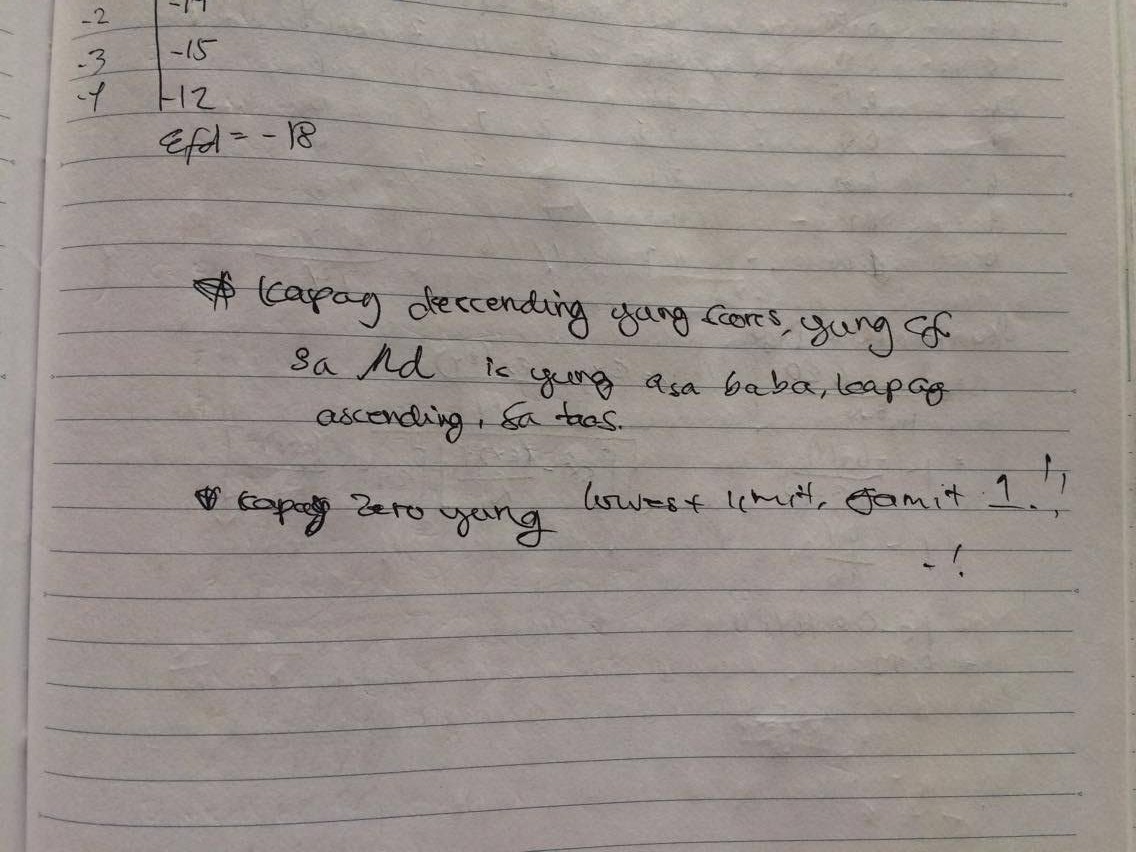 -2 -14
-3 -15
-4 -12
Σfd = -18
Kapag descending yung scores, yung cf
sa Md is yung asa baba, kapag
ascending, sa taas.
kapag zero yung lowest limit, gamit 1.